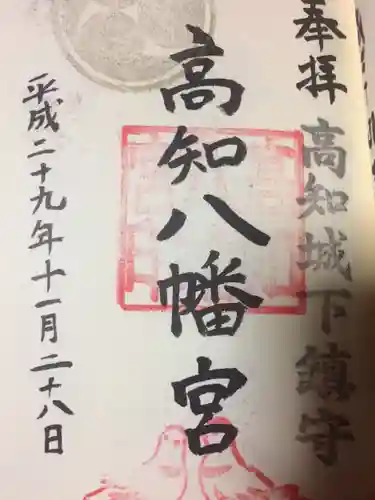 奉拝
高知城下鎮守
高知八幡宮
平成二十九年十一月二十八日